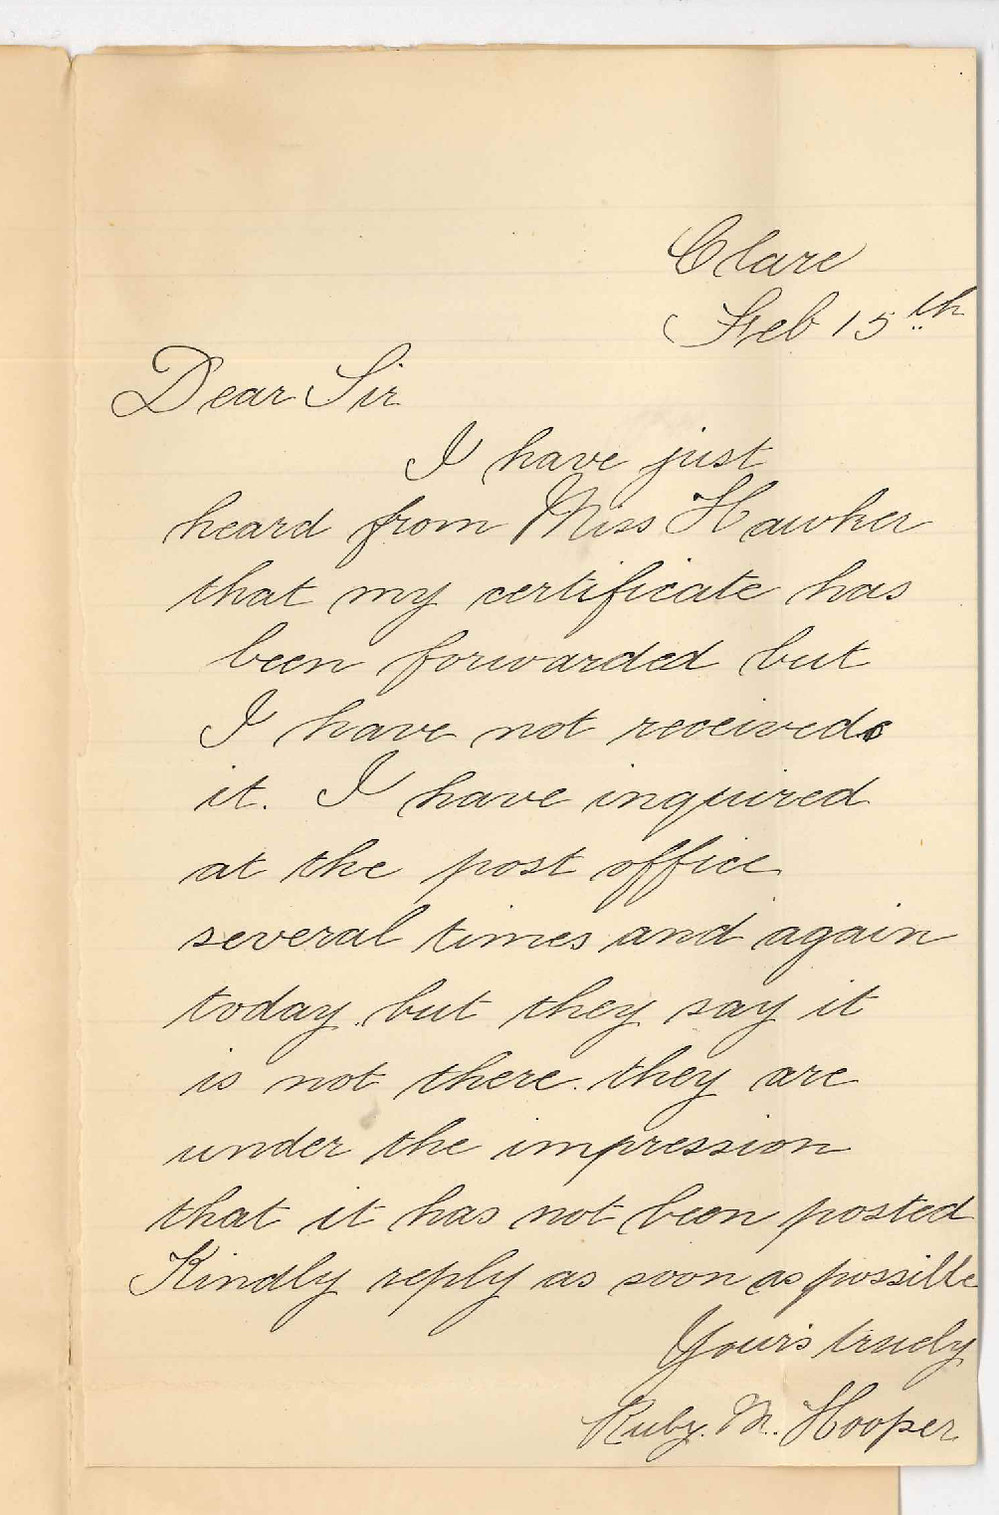 Clare
Feb 15th
Dear Sir
I have just
heard from Miss Hawker
that my certificate has
been forwarded but
I have not received
it. I have inquired
at the post office
several times and again
today. but they say it
is not there. they are
under the impression
that it has not been posted
Kindly reply as soon as possible
Yours truely
Ruby. M. Hooper